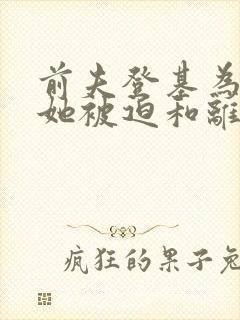 前夫登基為
她被迫和離
瘋狂的果子兔